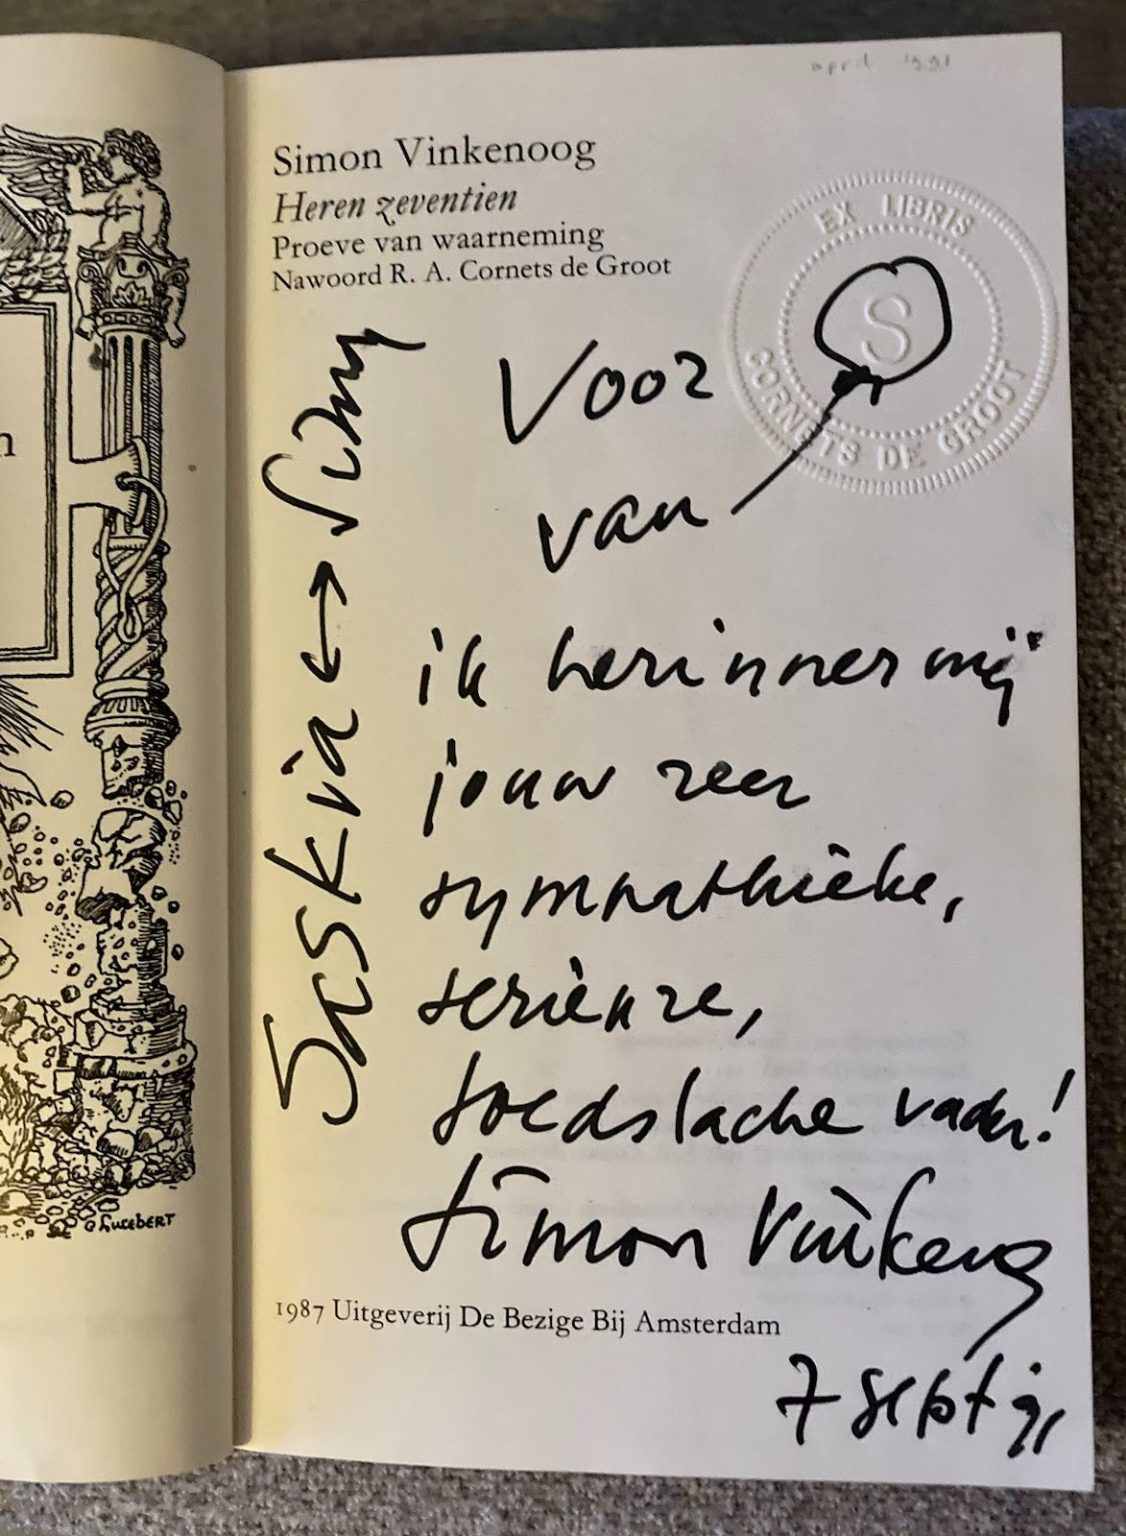 april 1991
Simon Vinkenoog
Heren zeventien
Proeve van waarneming
Nawoord R. A. Cornets de Groot
EX LIBRIS
S
CORNETS DE GROOT
Voor
van
Saskia ↔
ik herinner mij
jouw zeer
sympathieke,
serieuze,
goedslachse vader!
Simon Vinkenoog
1987 Uitgeverij De Bezige Bij Amsterdam
7 sept 91
n
Lucebert